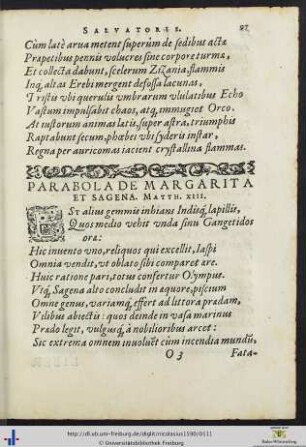 SALVATORIS. 87
Cùm latè arua metent superûm de sedibus actæ
Præpetibus pennis volucres sine corpore turmæ,
Et collecta dabunt, scelerum Zizania, flammis
Inq́; altas Erebi mergent defossa lacunas,
Tristis vbi querulis vmbrarum vlulatibus Echo
Vastum impulsabit chaos, atq́; immugiet Orco.
At iustorum animas lata, super astra, triumphis
Raptabunt secum, phœbei vbi syderis instar,
Regna per auricomas iacient crystallina flammas.
PARABOLA DE MARGARITA
ET SAGENA. MATTH. XIII.
EST alius gemmis inhians Indisq́; lapillis,
Quos medio vehit vnda sinu Gangetidos
oræ:
Hic inuento vno, reliquos qui excellit, Iaspi
Omnia vendit, vt oblato sibi comparet ære.
Huic ratione pari, totus confertur Olympus.
Vtq́; Sagena alto concludit in æquore, piscium
Omne genus, variamq́; effert ad littora prædam,
Vilibus abiectis: quos deinde in vasa marinus
Prædo legit, vulgusq́; à nobilioribus arcet:
Sic extrema omnem inuoluet cùm incendia mundũ,
O 3 Fata-
http://dl.ub.uni-freiburg.de/diglit/nicolasius1590/0111
© Universitätsbibliothek Freiburg